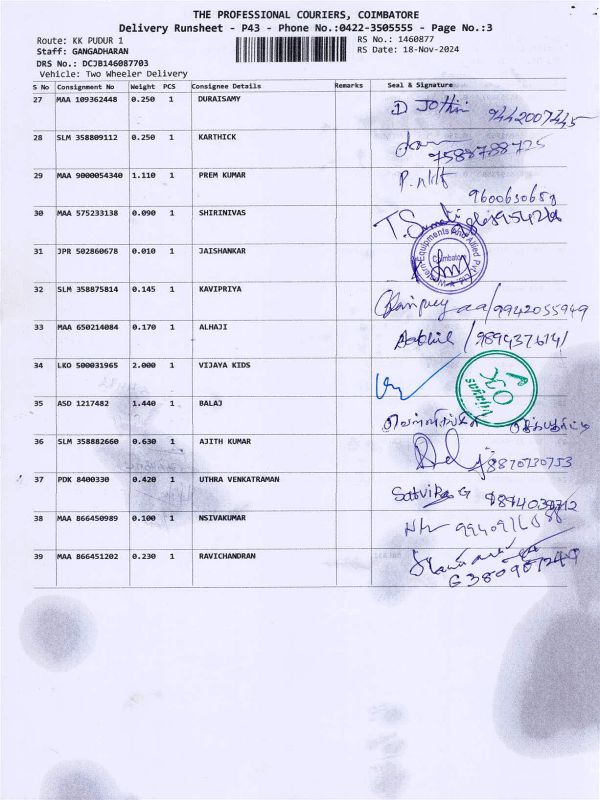 THE PROFESSIONAL COURIERS, COIMBATORE
Delivery Runsheet - P43 - Phone No.:0422-3505555 - Page No.:3
Route: KK PUDUR 1 RS No.: 1460877
Staff: GANGADHARAN RS Date: 18-Nov-2024
DRS No.: DCJB146087703
Vehicle: Two Wheeler Delivery
S No Consignment No Weight PCS Consignee Details Remarks Seal & Signature
27 MAA 109362448 0.250 1 DURAISAMY D Jothi
28 SLM 358809112 0.250 1 KARTHICK 7588788725
29 MAA 9000054340 1.110 1 PREM KUMAR
30 MAA 575233138 0.090 1 SHIRINIVAS T. Sumati
31 JPR 502860678 0.010 1 JAISHANKAR Coimbatore
32 SLM 358875814 0.145 1 KAVIPRIYA 9942055949
33 MAA 650214084 0.170 1 ALHAJI
34 LKO 500031965 2.000 1 VIJAYA KIDS
35 ASD 1217482 1.440 1 BALAJ
36 SLM 358882660 0.630 1 AJITH KUMAR 8870730753
37 PDK 8400330 0.420 1 UTHRA VENKATRAMAN Satvika G
38 MAA 866450989 0.100 1 NSIVAKUMAR
39 MAA 866451202 0.230 1 RAVICHANDRAN